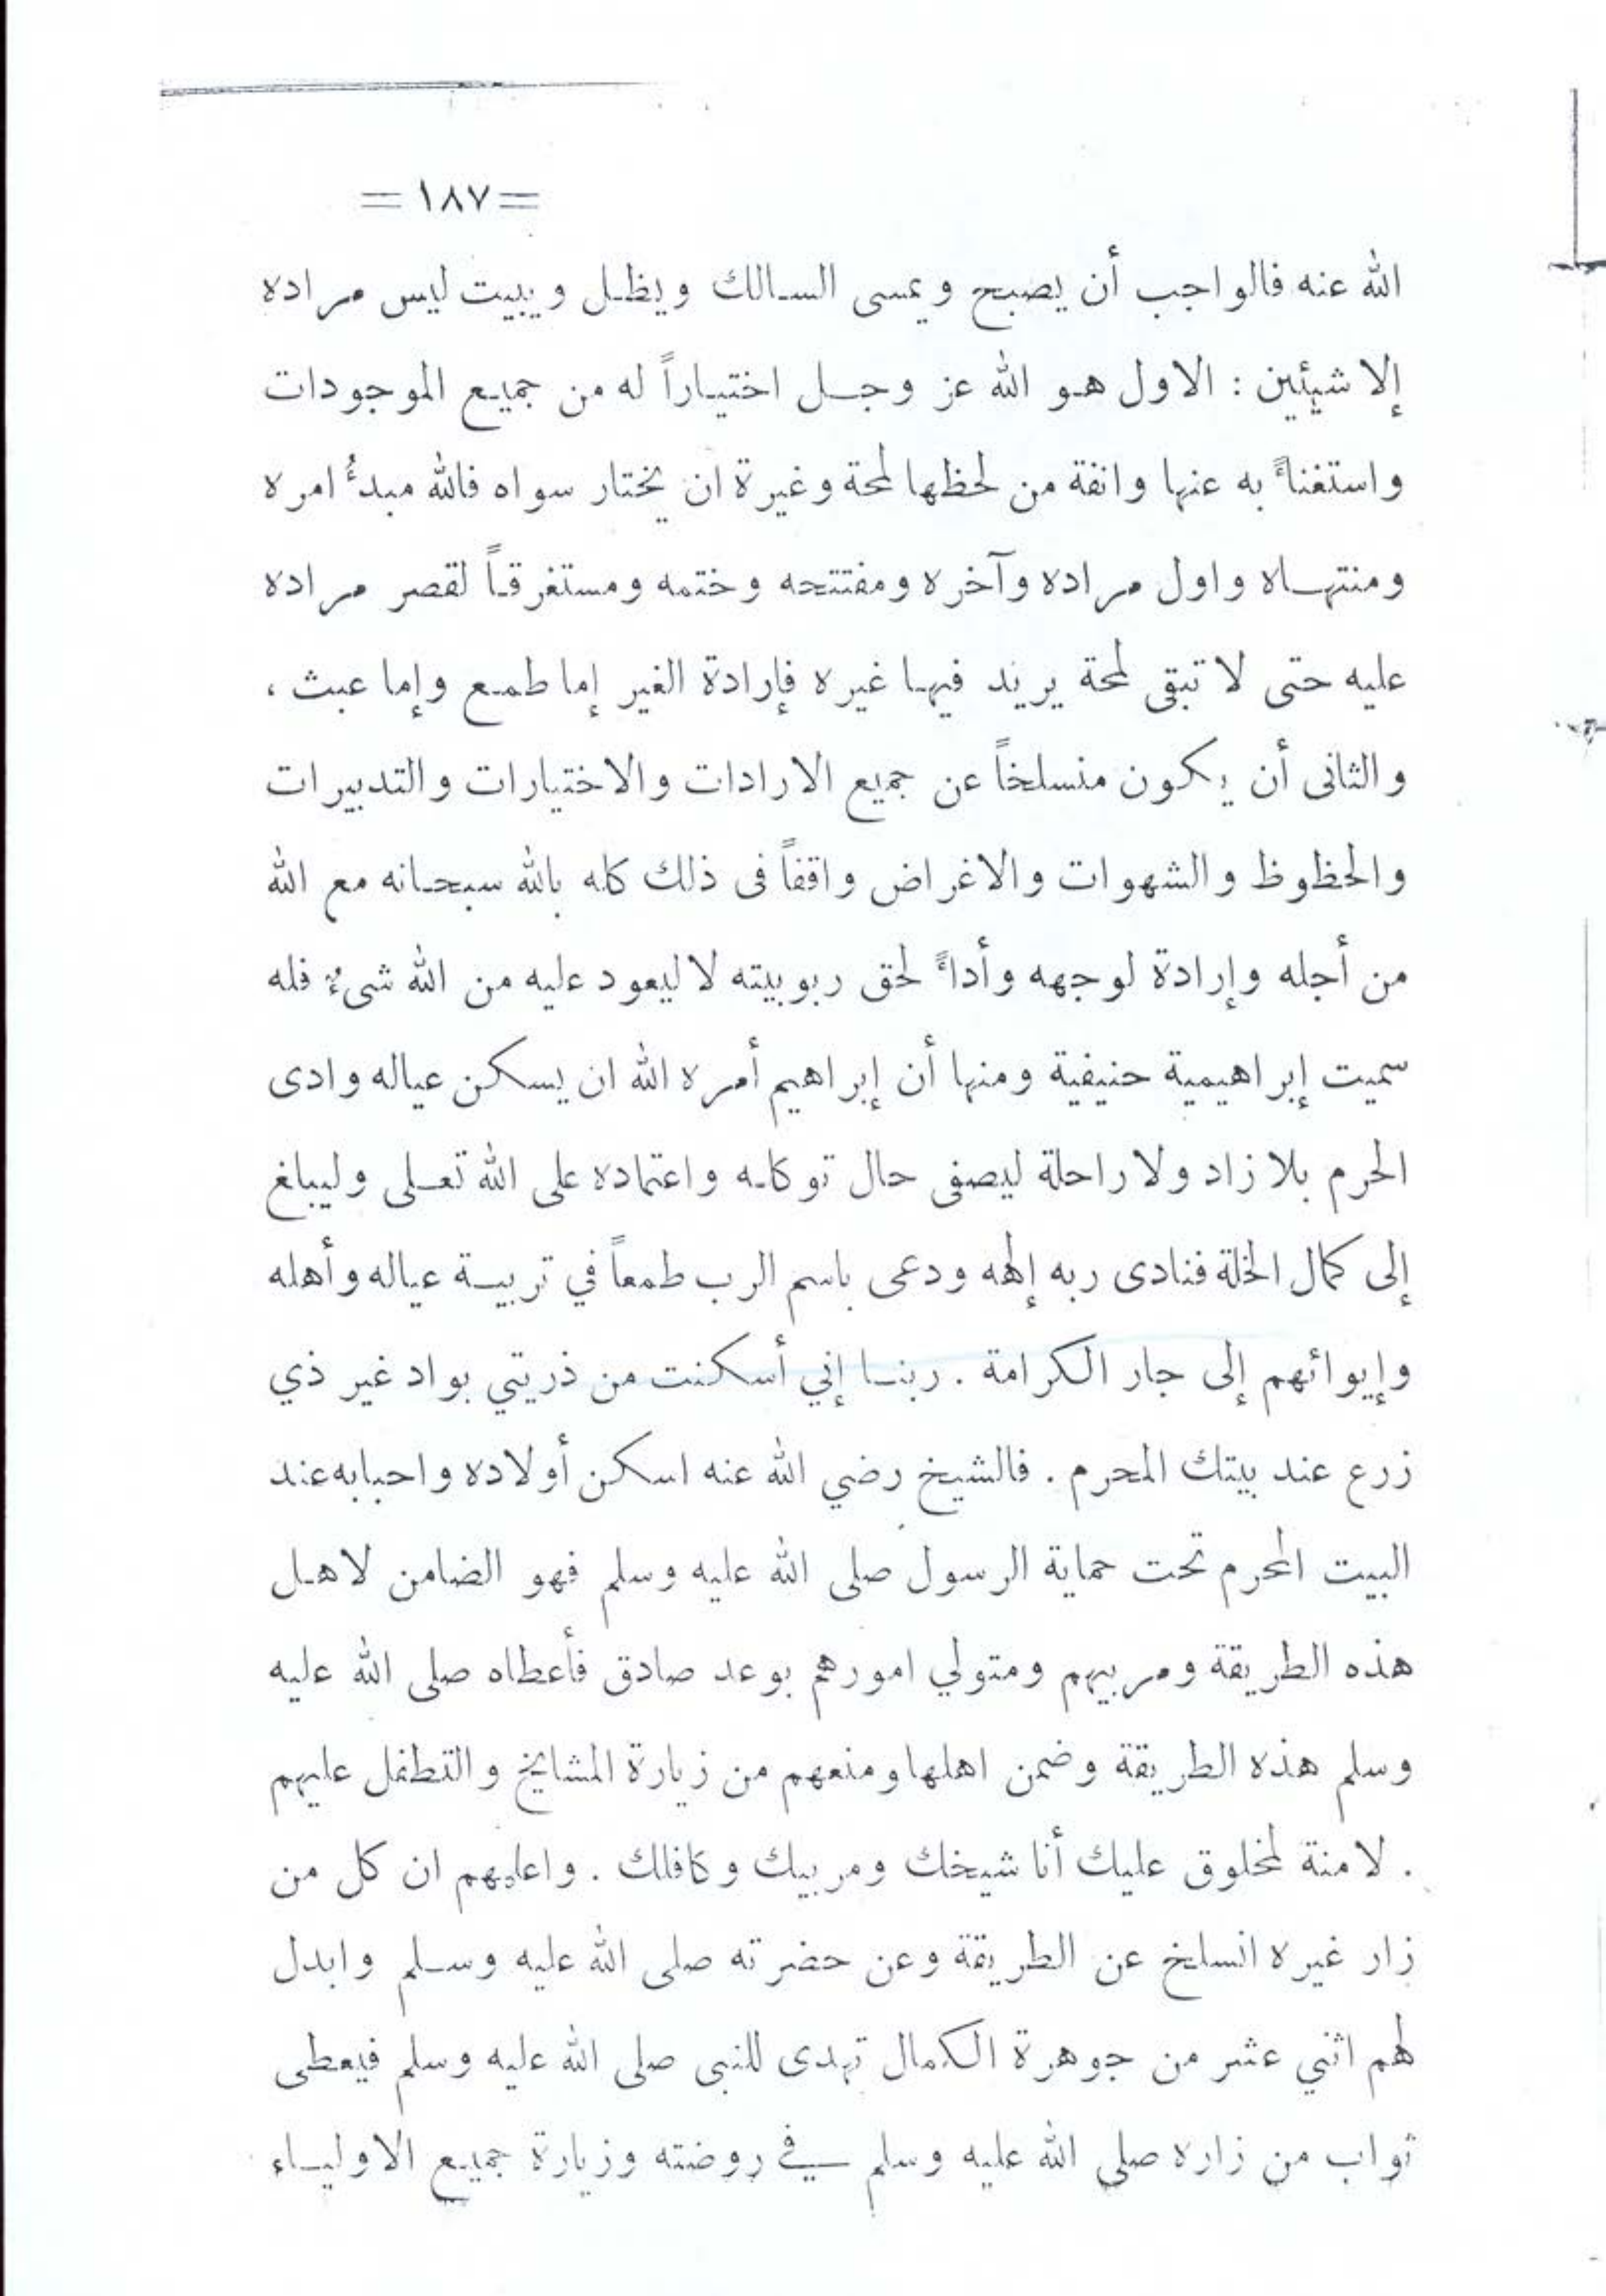 =١٨٧=
الله عنه فالواجب أن يصبح ويمسى السالك ويظل ويبيت ليس مراده
إلا شيئين : الاول هو الله عز وجل اختياراً له من جميع الموجودات
واستغناءً به عنها وانفة من لحظها لمحة وغيرة ان يختار سواه فالله مبدءُ امره
ومنتهاه واول مراده وآخره ومفتتحه وختمه ومستغرقاً لقصر مراده
عليه حتى لا تبقى لمحة يريد فيها غيره فإرادة الغير إما طمع وإما عبث ،
والثانى أن يكون منسلخاً عن جميع الارادات والاختيارات والتدبيرات
والحظوظ والشهوات والاغراض واقفاً فى ذلك كله بالله سبحانه مع الله
من أجله وإرادة لوجهه وأداءً لحق ربوبيته لا ليعود عليه من الله شىءٌ فله
سميت إبراهيمية حنيفية ومنها أن إبراهيم أمره الله ان يسكن عياله وادى
الحرم بلا زاد ولا راحلة ليصفى حال توكله واعتماده على الله تعلى وليبلغ
إلى كمال الخلة فنادى ربه إلهه ودعى باسم الرب طمعاً في تربية عياله وأهله
وإيوائهم إلى جار الكرامة . ربنا إني أسكنت من ذريتي بواد غير ذي
زرع عند بيتك المحرم . فالشيخ رضي الله عنه اسكن أولاده واحبابه عند
البيت المحرم تحت حماية الرسول صلى الله عليه وسلم فهو الضامن لاهل
هذه الطريقة ومربيهم ومتولي امورهم بوعد صادق فأعطاه صلى الله عليه
وسلم هذه الطريقة وضمن اهلها ومنعهم من زيارة المشايخ والتطفل عليهم
. لا منة لمخلوق عليك أنا شيخك ومربيك وكافلك . واعلمهم ان كل من
زار غيره انسلخ عن الطريقة وعن حضرته صلى الله عليه وسلم وابدل
لهم اثني عشر من جوهرة الكمال تهدى للنبى صلى الله عليه وسلم فيعطى
ثواب من زاره صلى الله عليه وسلم في روضته وزيارة جميع الاولياء